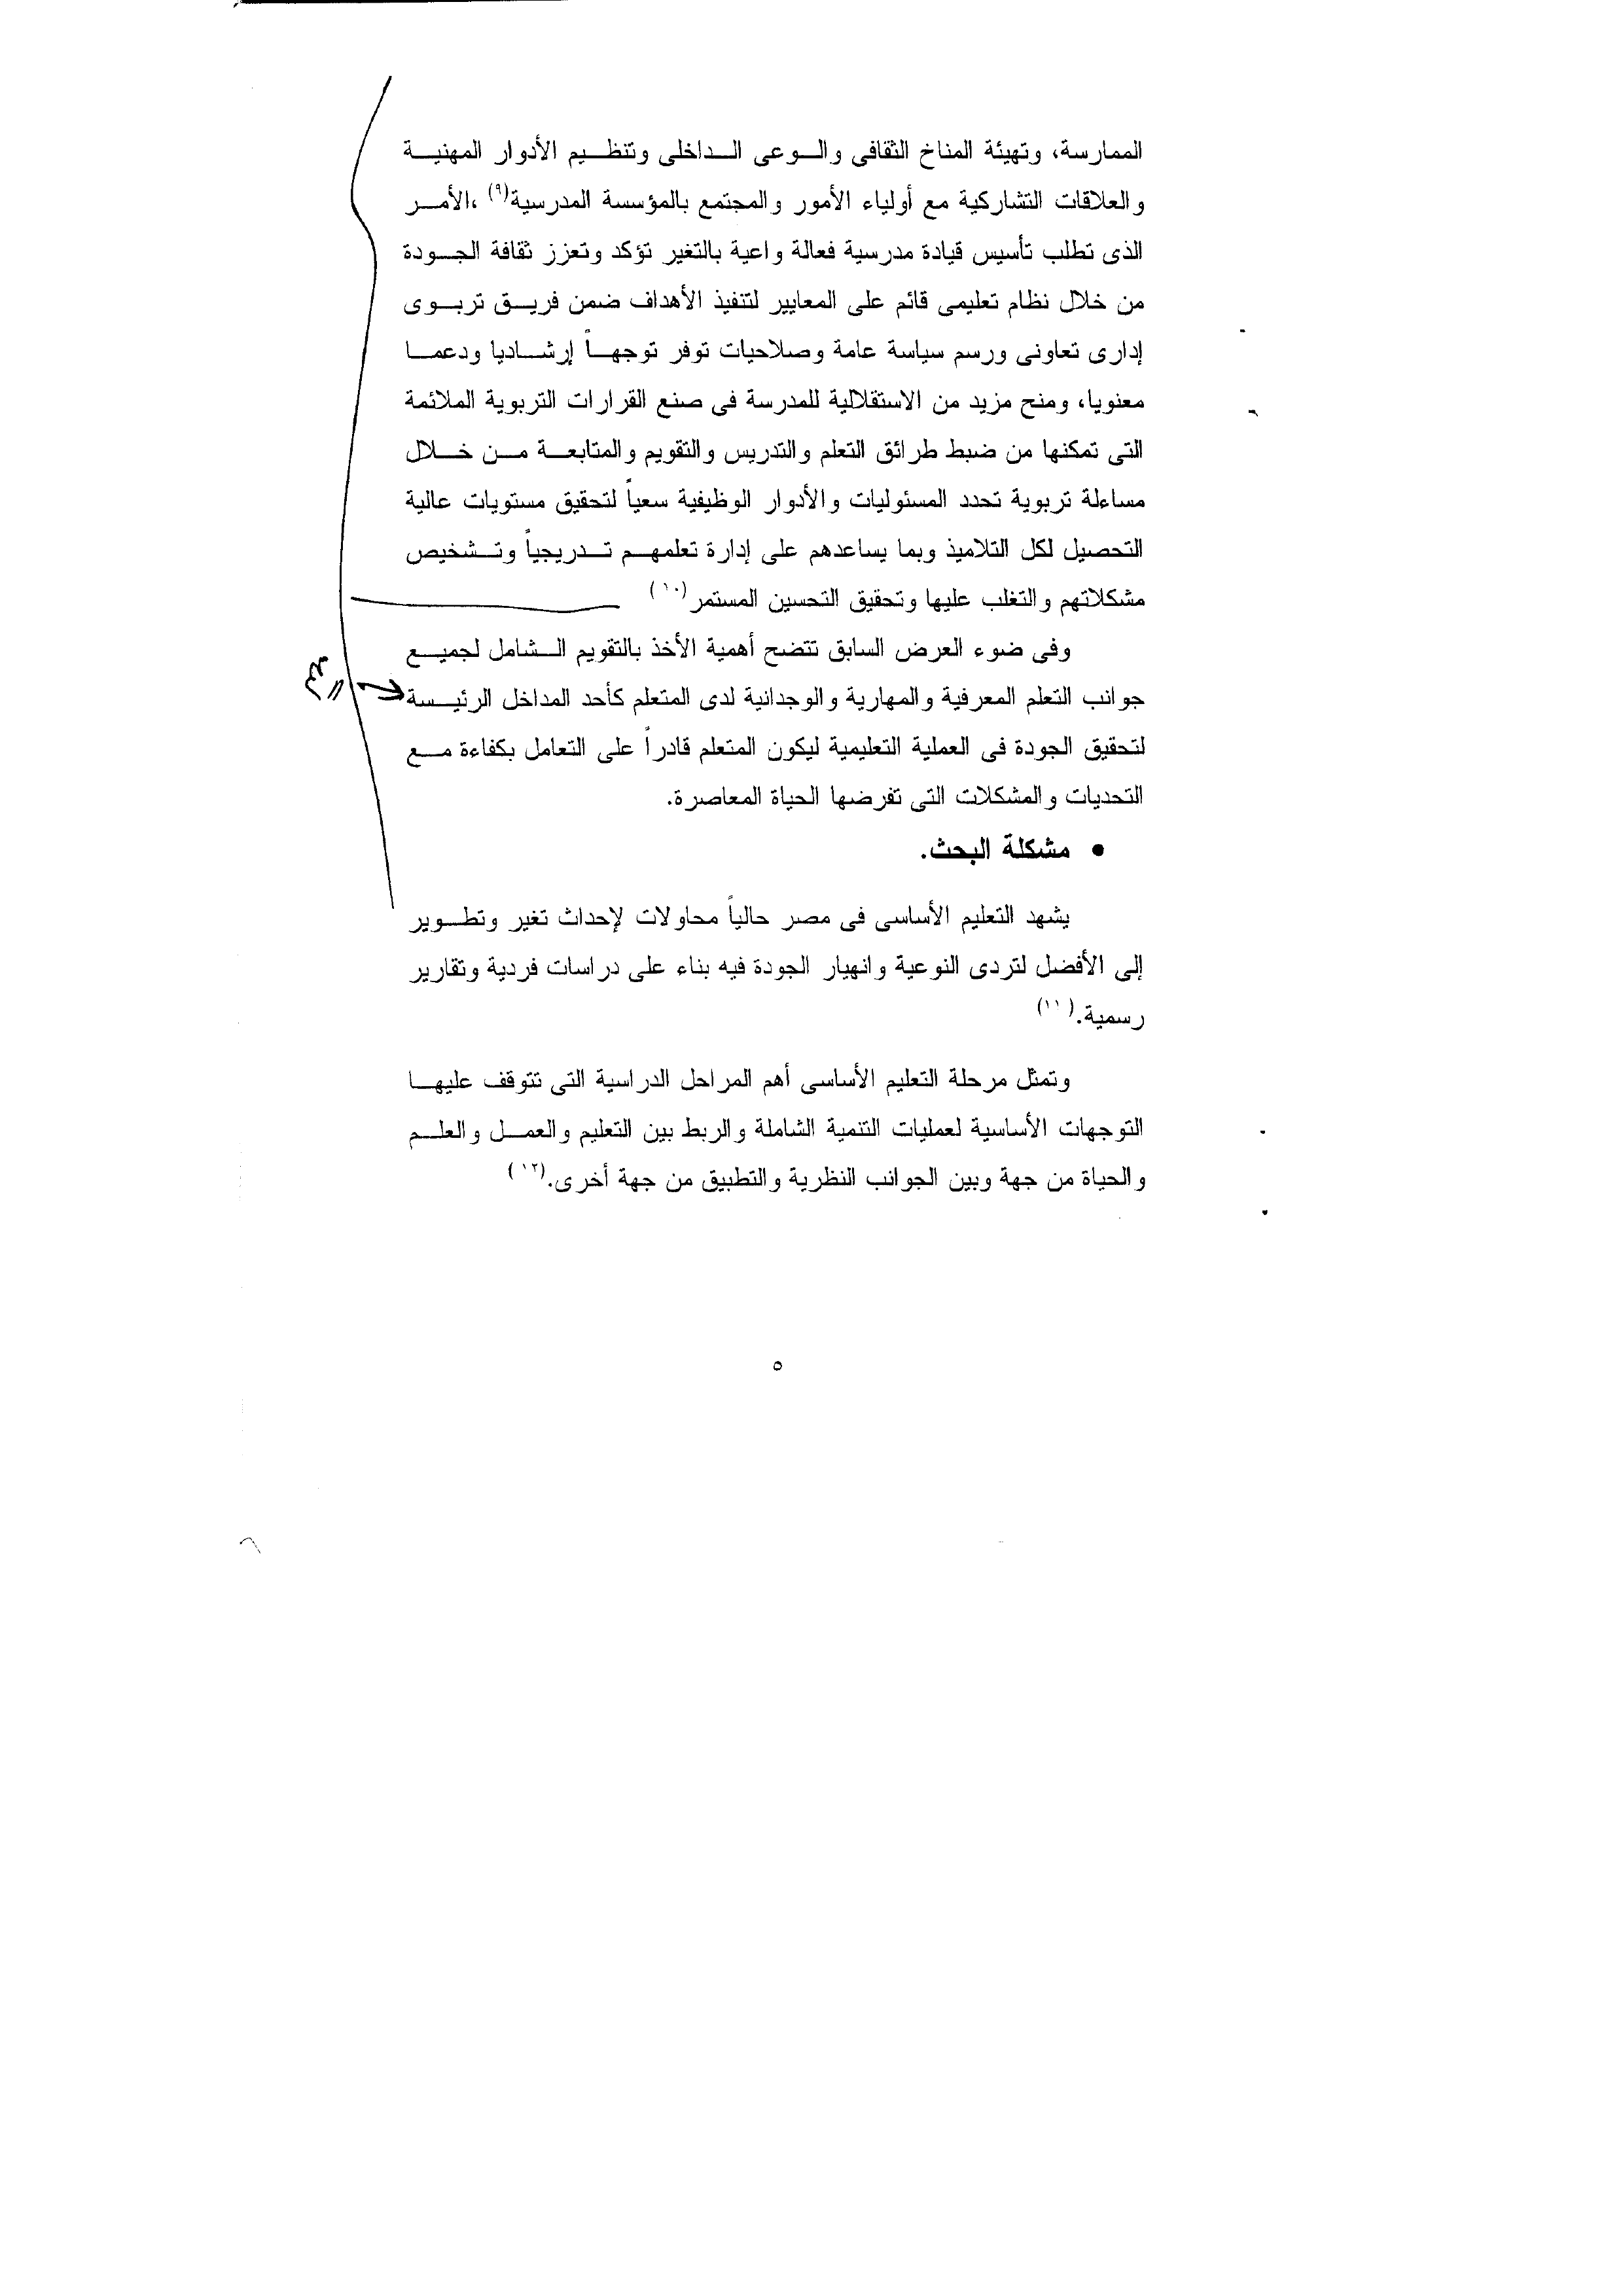 الممارسة، وتهيئة المناخ الثقافى والوعى الداخلى وتنظيم الأدوار المهنية
والعلاقات التشاركية مع أولياء الأمور والمجتمع بالمؤسسة المدرسية(٩) ،الأمر
الذى تطلب تأسيس قيادة مدرسية فعالة واعية بالتغير تؤكد وتعزز ثقافة الجودة
من خلال نظام تعليمى قائم على المعايير لتنفيذ الأهداف ضمن فريق تربوى
إدارى تعاونى ورسم سياسة عامة وصلاحيات توفر توجهاً إرشاديا ودعما
معنويا، ومنح مزيد من الاستقلالية للمدرسة فى صنع القرارات التربوية الملائمة
التى تمكنها من ضبط طرائق التعلم والتدريس والتقويم والمتابعة من خلال
مساءلة تربوية تحدد المسئوليات والأدوار الوظيفية سعياً لتحقيق مستويات عالية
التحصيل لكل التلاميذ وبما يساعدهم على إدارة تعلمهم تدريجياً وتشخيص
مشكلاتهم والتغلب عليها وتحقيق التحسين المستمر(١٠)
وفى ضوء العرض السابق تتضح أهمية الأخذ بالتقويم الشامل لجميع
جوانب التعلم المعرفية والمهارية والوجدانية لدى المتعلم كأحد المداخل الرئيسة
لتحقيق الجودة فى العملية التعليمية ليكون المتعلم قادراً على التعامل بكفاءة مع
التحديات والمشكلات التى تفرضها الحياة المعاصرة.
• مشكلة البحث.
يشهد التعليم الأساسى فى مصر حالياً محاولات لإحداث تغير وتطوير
إلى الأفضل لتردى النوعية وانهيار الجودة فيه بناء على دراسات فردية وتقارير
رسمية.(١١)
وتمثل مرحلة التعليم الأساسى أهم المراحل الدراسية التى تتوقف عليها
التوجهات الأساسية لعمليات التنمية الشاملة والربط بين التعليم والعمل والعلم
والحياة من جهة وبين الجوانب النظرية والتطبيق من جهة أخرى.(١٢)
٥